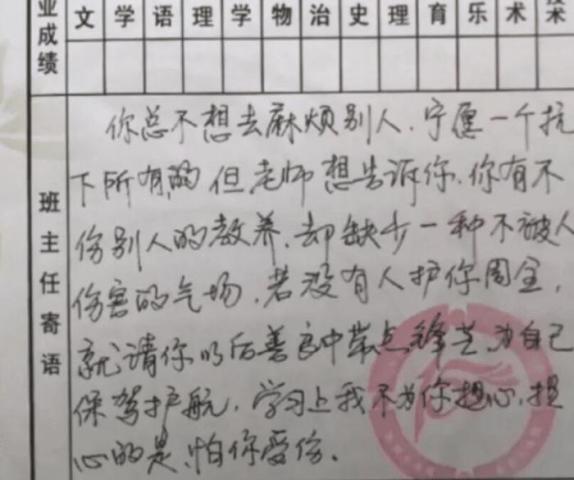 业成绩
文 学 语 理 学 物 治 史 理 育 乐 术 技术
班主任寄语
你总不想去麻烦别人，宁愿一个抗
下所有的但老师想告诉你，你有不
伤别人的教养，却缺少一种不被人
伤害的气场，若没有人护你周全，
就请你以后善良中带点锋芒，为自己
保驾护航，学习上我不为你担心，担
心的是，怕你受伤。